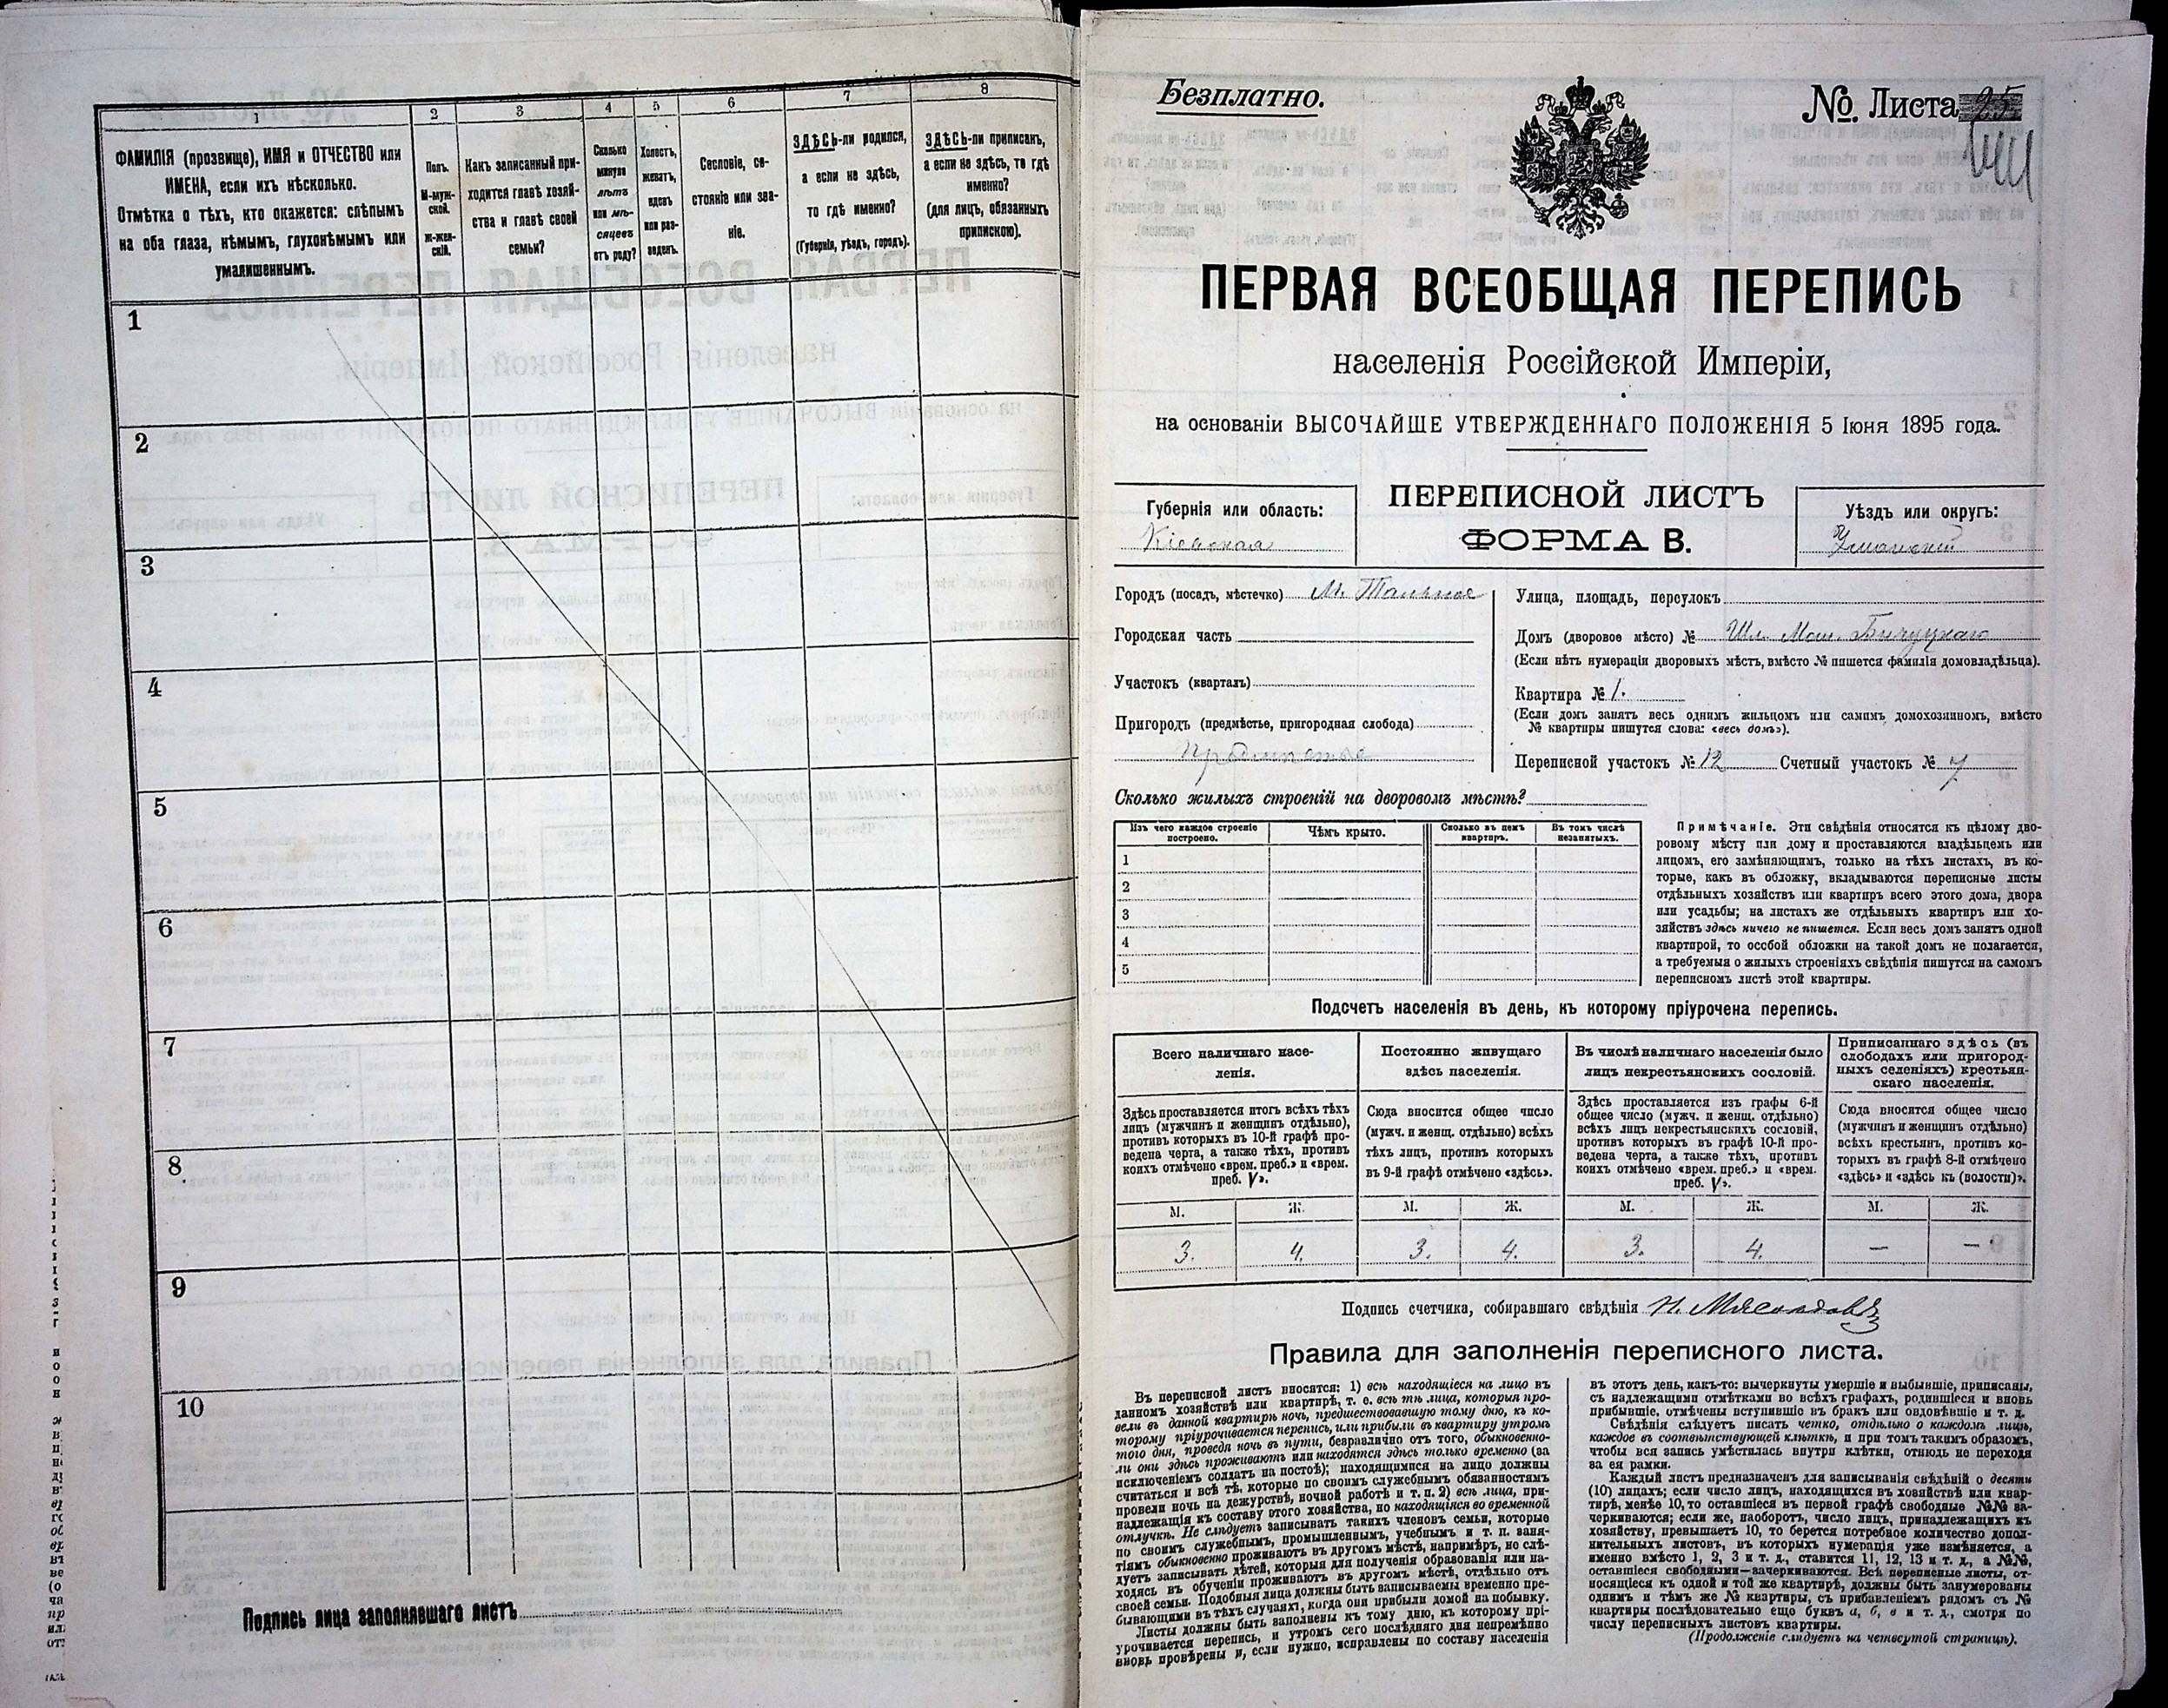 1
2
3
4
5
6
7
8
ФАМИЛІЯ (прозвище), ИМЯ и ОТЧЕСТВО или
ИМЕНА, если ихъ нѣсколько.
Отмѣтка о тѣхъ, кто окажется: слѣпымъ
на оба глаза, нѣмымъ, глухонѣмымъ или
умалишеннымъ.
Полъ.
М-муж-
ской.
Ж-жен-
скій.
Какъ записанный при-
ходится главѣ хозяй-
ства и главѣ своей
семьи?
Сколько
минуло
лѣтъ
или мѣ-
сяцевъ
отъ роду?
Холостъ,
женатъ,
вдовъ
или раз-
веденъ.
Сословіе, со-
стояніе или зва-
ніе.
ЗДѢСЬ-ли родился,
а если не здѣсь,
то гдѣ именно?
(Губернія, уѣздъ, городъ).
ЗДѢСЬ-ли приписанъ,
а если не здѣсь, то гдѣ
именно?
(для лицъ, обязанныхъ
припискою).
1
2
3
4
5
6
7
8
9
10
Подпись лица заполнявшаго листъ
Безплатно.
№. Листа 25
ПЕРВАЯ ВСЕОБЩАЯ ПЕРЕПИСЬ
населенія Россійской Имперіи,
на основаніи ВЫСОЧАЙШЕ УТВЕРЖДЕННАГО ПОЛОЖЕНІЯ 5 Іюня 1895 года.
Губернія или область:
Кіевская
ПЕРЕПИСНОЙ ЛИСТЪ
ФОРМА В.
Уѣздъ или округъ:
Уманскій
Городъ (посадъ, мѣстечко) М. Тальное
Городская часть
Участокъ (кварталъ)
Пригородъ (предмѣстье, пригородная слобода)
Улица, площадь, переулокъ
Домъ (дворовое мѣсто) № Шл. Мош. Бичуцкаго
(Если нѣтъ нумераціи дворовыхъ мѣстъ, вмѣсто № пишется фамилія домовладѣльца).
Квартира № 1.
(Если домъ занятъ весь однимъ жильцомъ или самимъ домохозяиномъ, вмѣсто
№ квартиры пишутся слова: «весь домъ»).
Переписной участокъ № 12 Счетный участокъ № 7
Сколько жилыхъ строеній на дворовомъ мѣстѣ?
Изъ чего каждое строеніе
построено.
Чѣмъ крыто.
Сколько въ немъ
квартиръ.
Въ томъ числѣ
незанятыхъ.
1
2
3
4
5
Примѣчаніе. Эти свѣдѣнія относятся къ цѣлому дво-
ровому мѣсту или дому и проставляются владѣльцемъ или
лицомъ, его замѣняющимъ, только на тѣхъ листахъ, въ ко-
торые, какъ въ обложку, вкладываются переписные листы
отдѣльныхъ хозяйствъ или квартиръ всего этого дома, двора
или усадьбы; на листахъ же отдѣльныхъ квартиръ или хо-
зяйствъ здѣсь ничего не пишется. Если весь домъ занятъ одной
квартирой, то особой обложки на такой домъ не полагается,
а требуемыя о жилыхъ строеніяхъ свѣдѣнія пишутся на самомъ
переписномъ листѣ этой квартиры.
Подсчетъ населенія въ день, къ которому пріурочена перепись.
Всего наличнаго насе-
ленія.
Постоянно живущаго
здѣсь населенія.
Въ числѣ наличнаго населенія было
лицъ некрестьянскихъ сословій.
Приписаннаго здѣсь (въ
слободахъ или пригород-
ныхъ селеніяхъ) крестьян-
скаго населенія.
Здѣсь проставляется итогъ всѣхъ тѣхъ
лицъ (мужчинъ и женщинъ отдѣльно),
противъ которыхъ въ 10-й графѣ про-
ведена черта, а также тѣхъ, противъ
коихъ отмѣчено «врем. преб.» и «врем.
преб. V».
Сюда вносится общее число
(мужч. и женщ. отдѣльно) всѣхъ
тѣхъ лицъ, противъ которыхъ
въ 9-й графѣ отмѣчено «здѣсь».
Здѣсь проставляется изъ графы 6-й
общее число (мужч. и женщ. отдѣльно)
всѣхъ лицъ некрестьянскихъ сословій,
противъ которыхъ въ графѣ 10-й про-
ведена черта, а также тѣхъ, противъ
коихъ отмѣчено «врем. преб.» и «врем.
преб. V».
Сюда вносится общее число
(мужчинъ и женщинъ отдѣльно)
всѣхъ крестьянъ, противъ ко-
торыхъ въ графѣ 8-й отмѣчено
«здѣсь» и «здѣсь къ (волости)».
М. Ж. М. Ж. М. Ж. М. Ж.
3. 4. 3. 4. 3. 4. — —
Подпись счетчика, собиравшаго свѣдѣнія Н. Мясоѣдовъ
Правила для заполненія переписного листа.
Въ переписной листъ вносятся: 1) всѣ находящіеся на лицо въ
данномъ хозяйствѣ или квартирѣ, т. е. всѣ тѣ лица, которыя про-
вели въ данной квартирѣ ночь, предшествовавшую тому дню, къ ко-
торому пріурочивается перепись, или прибыли въ квартиру утромъ
того дня, проведя ночь въ пути, безразлично отъ того, обыкновенно-
ли они здѣсь проживаютъ или находятся здѣсь только временно (за
исключеніемъ солдатъ на постоѣ); находящимися на лицо должны
считаться и всѣ тѣ, которые по своимъ служебнымъ обязанностямъ
провели ночь на дежурствѣ, ночной работѣ и т. п. 2) всѣ лица, при-
надлежащія къ составу этого хозяйства, но находящіяся во временной
отлучкѣ. Не слѣдуетъ записывать такихъ членовъ семьи, которые
по своимъ служебнымъ, промышленнымъ, учебнымъ и т. п. заня-
тіямъ обыкновенно проживаютъ въ другомъ мѣстѣ, напримѣръ, не слѣ-
дуетъ записывать дѣтей, которыя для полученія образованія или на-
ходясь въ обученіи проживаютъ въ другомъ мѣстѣ, отдѣльно отъ
своей семьи. Подобныя лица должны быть записываемы временно пре-
бывающими въ тѣхъ случаяхъ, когда они прибыли домой на побывку.
Листы должны быть заполнены къ тому дню, къ которому прі-
урочивается перепись, и утромъ сего послѣдняго дня непремѣнно
вновь провѣрены и, если нужно, исправлены по составу населенія
въ этотъ день, какъ-то: вычеркнуты умершіе и выбывшіе, приписаны,
съ надлежащими отмѣтками во всѣхъ графахъ, родившіеся и вновь
прибывшіе, отмѣчены вступившіе въ бракъ или овдовѣвшіе и т. д.
Свѣдѣнія слѣдуетъ писать четко, отдѣльно о каждомъ лицѣ,
каждое въ соотвѣтствующей клѣткѣ, и при томъ такимъ образомъ,
чтобы вся запись умѣстилась внутри клѣтки, отнюдь не переходя
за ея рамки.
Каждый листъ предназначенъ для записыванія свѣдѣній о десяти
(10) лицахъ; если число лицъ, находящихся въ хозяйствѣ или квар-
тирѣ, менѣе 10, то оставшіеся въ первой графѣ свободные №№ за-
черкиваются; если же, наоборотъ, число лицъ, принадлежащихъ къ
хозяйству, превышаетъ 10, то берется потребное количество допол-
нительныхъ листовъ, въ которыхъ нумерація уже измѣняется, а
именно вмѣсто 1, 2, 3 и т. д., ставится 11, 12, 13 и т. д., а №№,
оставшіеся свободными—зачеркиваются. Всѣ переписные листы, от-
носящіеся къ одной и той же квартирѣ, должны быть занумерованы
однимъ и тѣмъ же № квартиры, съ прибавленіемъ рядомъ съ №
квартиры послѣдовательно еще буквъ а, б, в и т. д., смотря по
числу переписныхъ листовъ квартиры.
(Продолженіе слѣдуетъ на четвертой страницѣ).